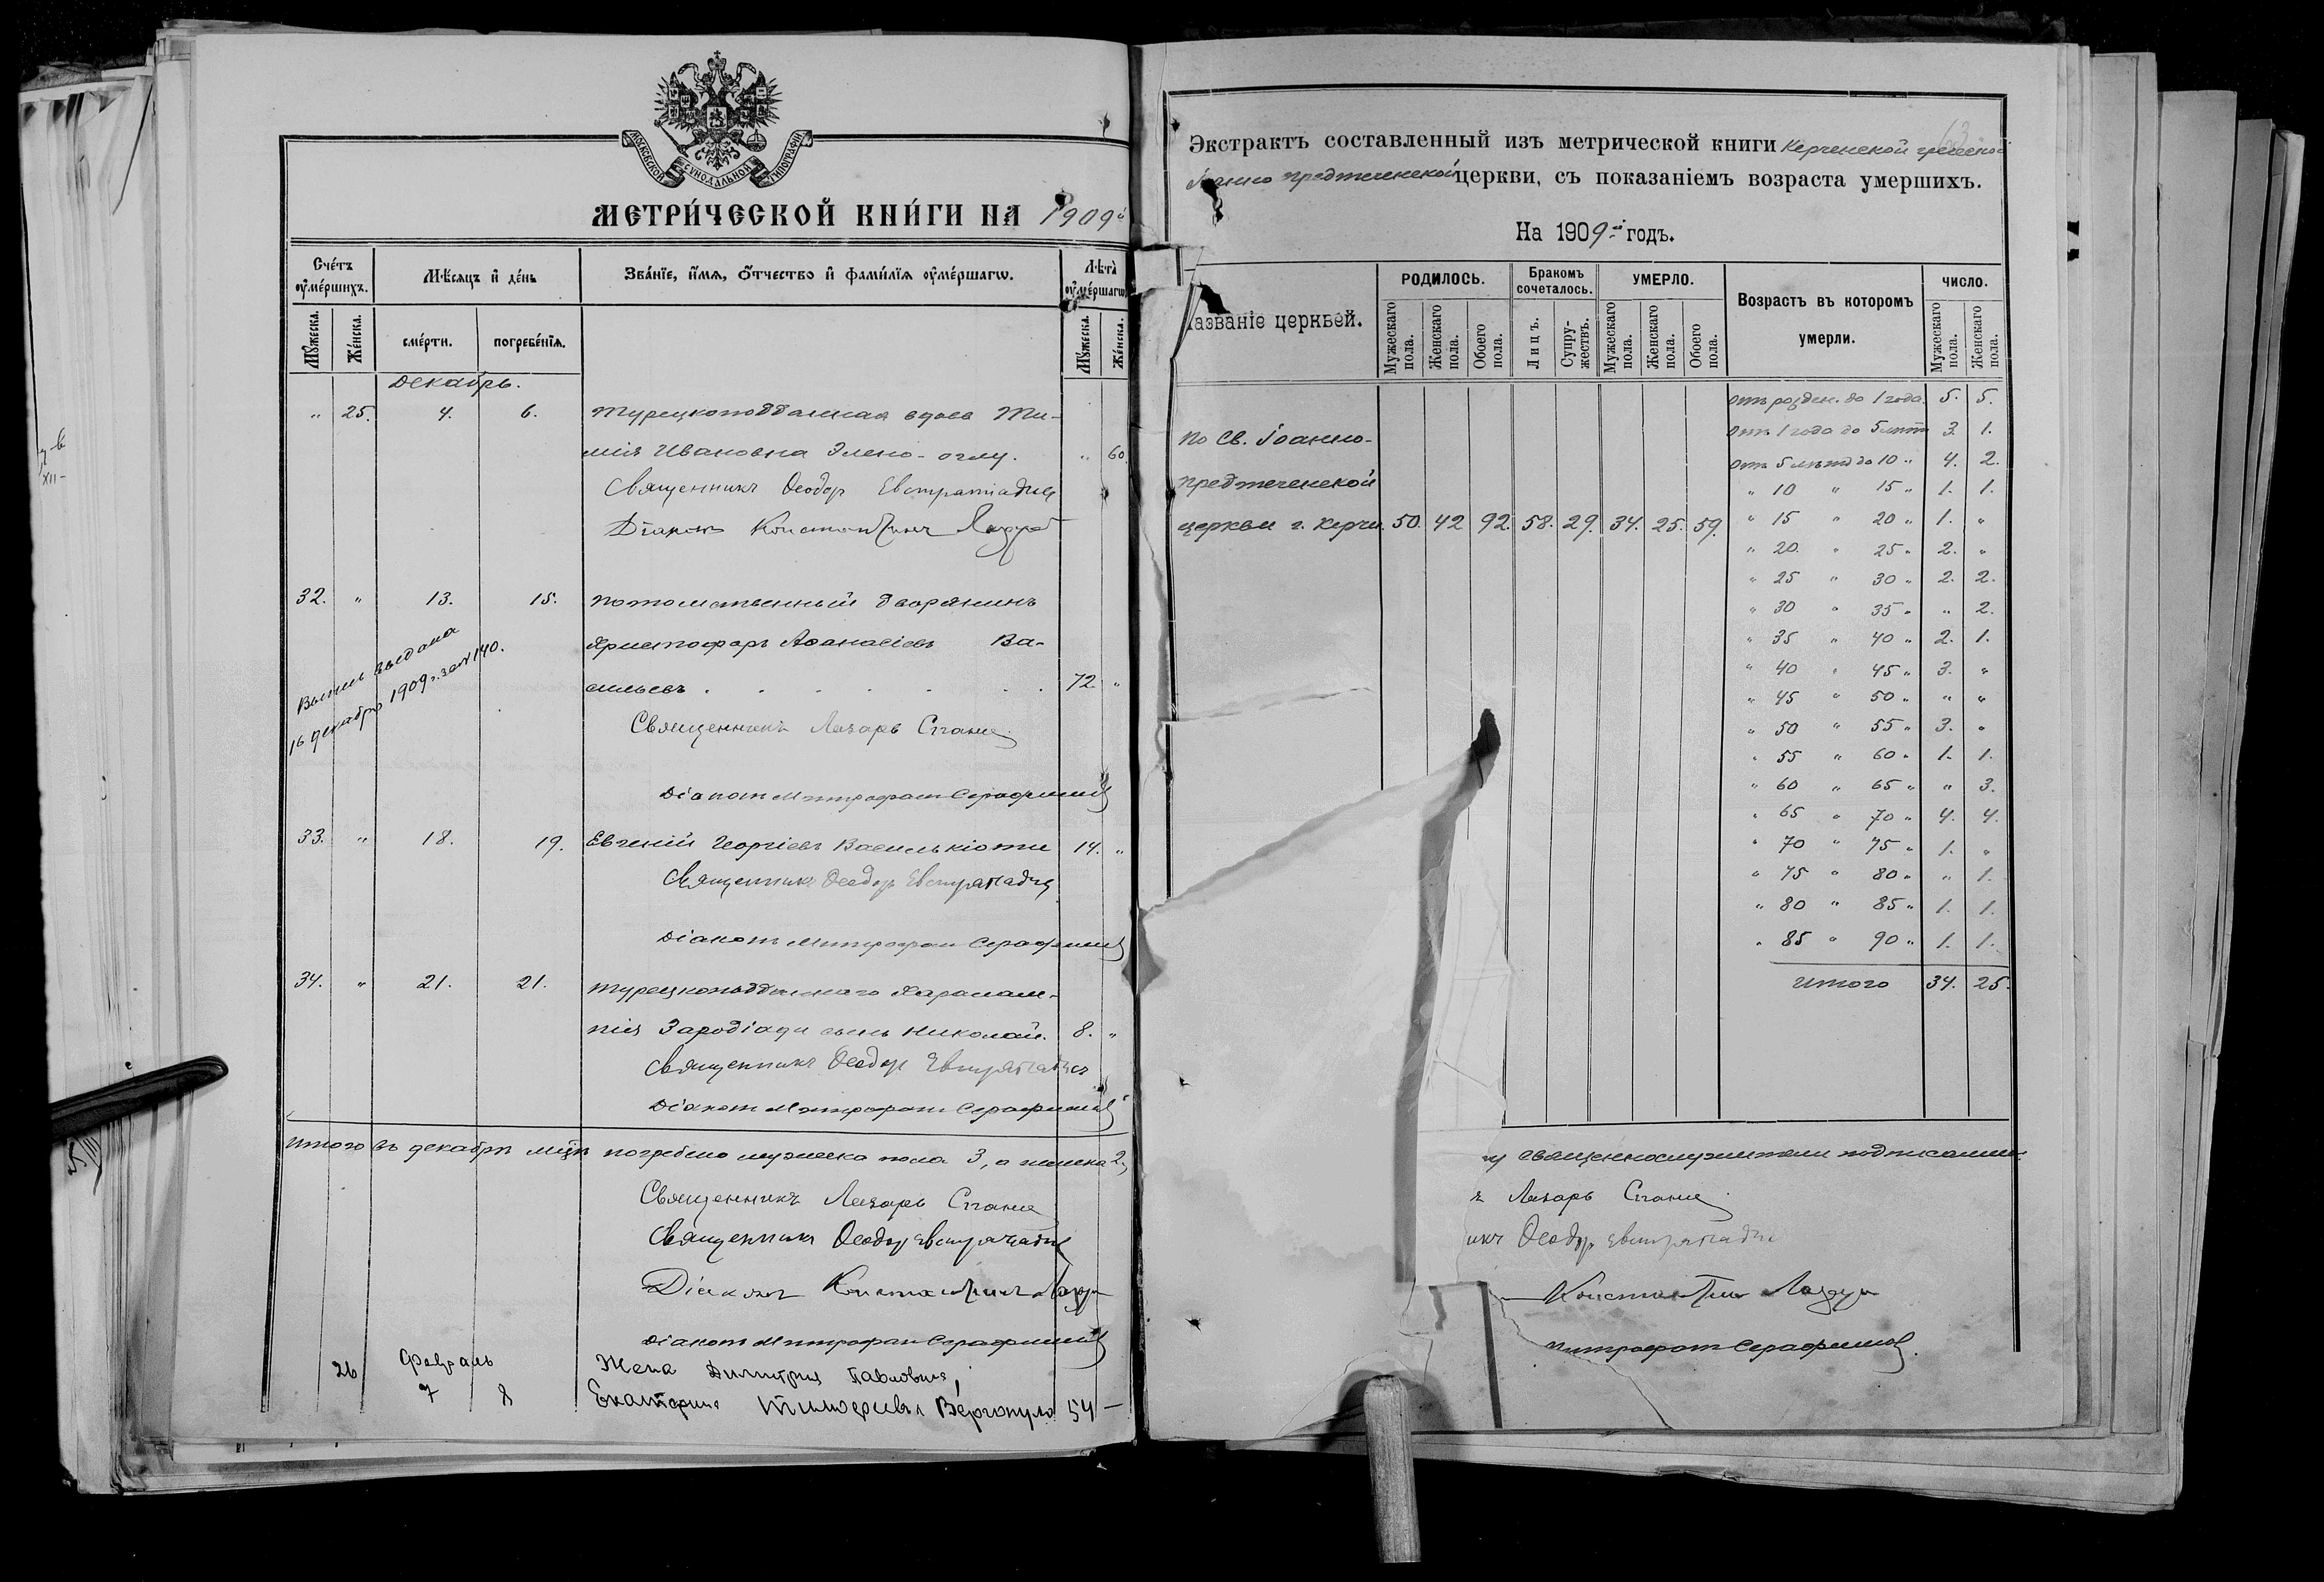 МОСКОВСКОЙ СѴНОДАЛЬНОЙ ТИПОГРАФІИ
МЕТРИ́ЧЕСКОЙ КНИ́ГИ НА 1909й
Сче́тъ ᲂумѐршихъ.
Мѣсяцъ и де́нь
Зва́нїе, и́мѧ, ѻ҆́тчество и фами́лїѧ ᲂуме́ршагѡ.
Лѣта̀ ᲂуме́ршагѡ
Мꙋжеска.
Же́нска.
сме́рти.
погребе́нїѧ.
Мꙋжеска.
Же́нска.
Декабрь.
" 25. 4. 6. Турецкоподданная вдова Ти-
мія Ивановна Элено-оглу. " 60.
Священникъ Ѳеодоръ Евстратіадисъ
Діаконъ Константинъ
32. " 13. 15. Потомственный дворянинъ
Христофоръ Аѳанасіевъ Ва-
сильевъ . . . . . . 72. "
Выпись выдана
16 декабря 1909 г. за № 140.
Священникъ Лазарь
Діаконъ Митрофанъ Серафимовъ
33. " 18. 19. Евгеній Георгіевъ Василькіоти 14. "
Священникъ Ѳеодоръ Евстратіадисъ
Діаконъ Митрофанъ Серафимовъ
34. " 21. 21. Турецкоподданнаго Харалам-
пія Зародіади сынъ Николай. 8. "
Священникъ Ѳеодоръ Евстратіадисъ
Діаконъ Митрофанъ Серафимовъ
Итого въ декабрѣ м-цѣ погребено мужеска пола 3, а женска 2,
Священникъ Лазарь
Священникъ Ѳеодоръ Евстратіадисъ
Діаконъ Константинъ
Діаконъ Митрофанъ Серафимовъ
26 Февраль Жена Димитрія Павловича,
7 8 Екатерина Тимоѳеевна Вергопуло 54 —
Экстрактъ составленный изъ метрической книги Керченской греческой
Іоанно Предтеченской церкви, съ показаніемъ возраста умершихъ.
На 1909й годъ.
Названіе церквей.
РОДИЛОСЬ.
Бракомъ сочеталось.
УМЕРЛО.
Возрастъ въ которомъ умерли.
ЧИСЛО.
Мужескаго пола.
Женскаго пола.
Обоего пола.
Лицъ.
Супружествъ.
Мужескаго пола.
Женскаго пола.
Обоего пола.
Мужескаго пола.
Женскаго пола.
По Св. Іоанно-
Предтеченской
церкви г. Керчи. 50. 42 92. 58. 29. 34. 25. 59.
Отъ рожден. до 1 года. 5. 5.
Отъ 1 года до 5 лѣтъ 3. 1.
Отъ 5 лѣтъ до 10 " 4. 2.
" 10 " 15 " 1. 1.
" 15 " 20 " 1. "
" 20. " 25 " 2. "
" 25 " 30 " 2. 2.
" 30 " 35 " " 2.
" 35 " 40 " 2. 1.
" 40 " 45 " 3. "
" 45 " 50 " " "
" 50 " 55 " 3. "
" 55 " 60 " 1. 1.
" 60 " 65 " " 3.
" 65 " 70 " 4. 4.
" 70 " 75 " 1. "
" 75 " 80 " " 1.
" 80 " 85 " 1. 1.
" 85 " 90 " 1. 1.
Итого 34. 25.
священнослужители подписали:
ъ Лазарь
икъ Ѳеодоръ Евстратіадисъ
Константинъ
Митрофанъ Серафимовъ.